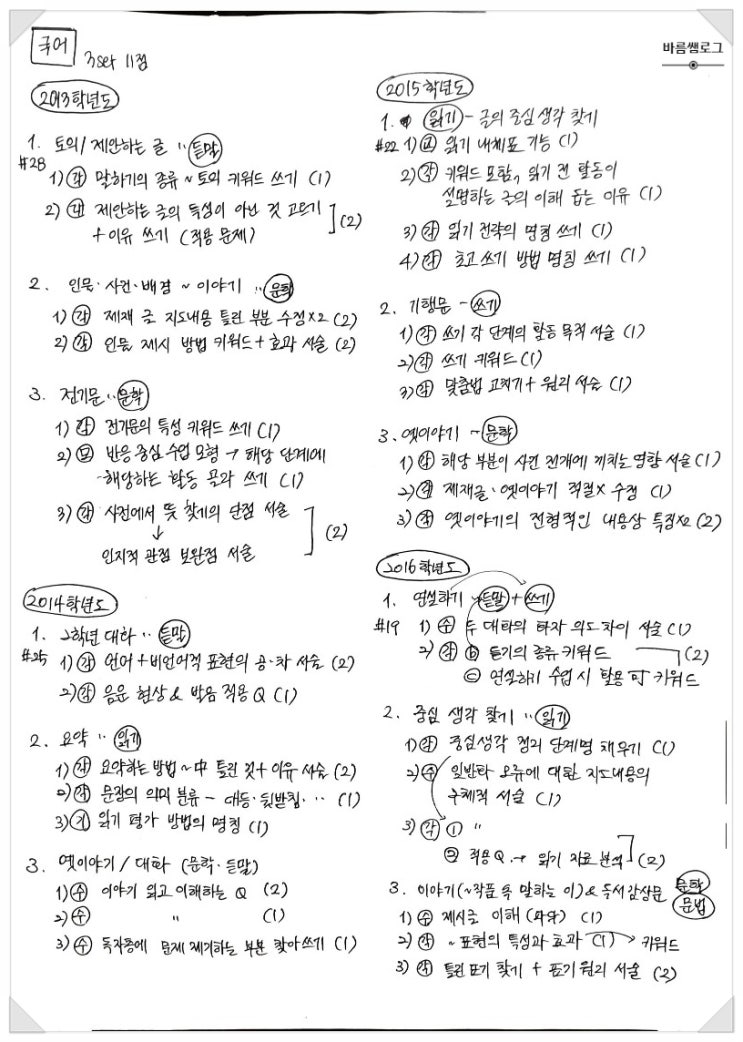 국어
3set 11점
바름쌤로그
2013학년도
1. 토의/제안하는 글 ·· 듣말
#28
1) 각 말하기의 종류 ~ 토의 키워드 쓰기 (1)
2) 각 제안하는 글의 특성이 아닌 것 고르기
+ 이유 쓰기 (적용 문제) ] (2)
2. 인물·사건·배경 ~ 이야기 ·· 문학
1) 각 제재 글 지도내용 틀린 부분 수정x2 (2)
2) 각 인물 제시 방법 키워드 + 효과 서술 (2)
3. 전기문 ·· 문학
1) 각 전기문의 특성 키워드 쓰기 (1)
2) 모 반응 중심 수업 모형 → 해당 단계에
해당하는 활동 골라 쓰기 (1)
3) 각 사건에서 뜻 찾기의 단점 서술
↓ ] (2)
인지적 관점 보완점 서술
2014학년도
1. 2학년 대화 ·· 듣말
#25 1) 각 언어+비언어적 표현의 공·차 서술 (2)
2) 각 음운 현상 & 발음 적용 Q (1)
2. 요약 ·· 읽기
1) 각 요약하는 방법 ~ 中 틀린 것 + 이유 서술 (2)
2) 각 문장의 의미 분류 - 대등·뒷받침 ·· (1)
3) 기 읽기 평가 방법의 명칭 (1)
3. 옛이야기 / 대화 (문학·듣말)
1) 수 이야기 읽고 이해하는 Q (2)
2) 수 〃 (1)
3) 수 독자중에 문제 제기하는 부분 찾아쓰기 (1)
2015학년도
1. 읽기 - 글의 중심 생각 찾기
#22 1) 교 읽기 내체표 기능 (1)
2) 각 키워드 포함, 읽기 전 활동이
설명하는 글의 이해 돕는 이유 (1)
3) 각 읽기 전략의 명칭 쓰기 (1)
4) 각 초고 쓰기 방법 명칭 쓰기 (1)
2. 기행문 - 쓰기
1) 각 쓰기 각 단계의 활동 목적 서술 (1)
2) 각 쓰기 키워드 (1)
3) 각 맞춤법 고쳐기 + 원리 서술 (1)
3. 옛이야기 - 문학
1) 각 해당 부분이 사건 전개에 끼치는 영향 서술 (1)
2) 각 제재글·옛이야기 적절X 수정 (1)
3) 각 옛이야기의 전형적인 내용상 특징x2 (2)
2016학년도
1. 연설하기 듣말 + 쓰기
#19 1) 수 두 대화의 화자 의도 차이 서술 (1)
2) 각 ⓑ 듣기의 종류 키워드
ⓒ 연설하기 수업 시 활용 키워드 ] (2)
2. 중심 생각 찾기 ·· 읽기
1) 각 중심생각 정리 단계명 채우기 (1)
2) 수 일반화 오류에 대한 지도내용의
구체적 서술 (1)
3) 각 ① 〃
② 적용 Q. → 읽기 자료 분석 ] (2)
3. 이야기(~작품 속 말하는 이) & 독서감상문 문학 문법
1) 수 제시글 이해 (파악) (1)
2) 각 ~ 표현의 특성과 효과 (1) → 키워드
3) 각 틀린 표기 찾기 + 표기 원리 서술 (2)